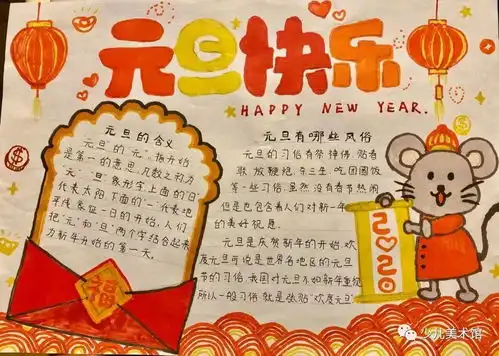 元旦快乐
HAPPY NEW YEAR.
元旦的含义
元旦的"元",指开始,
是第一的意思,凡数之初为
"元",“旦”象形字上面的"日"
代表太阳,下面的"一"代表地
平线象征一日的开始,人们
把"元"和"旦"两个字结合起来
为新年开始的第一天。
福
元旦有哪些风俗
元旦的习俗有祭神佛,贴春
联,放鞭炮,杀三生,吃团圆饭
等一些习俗,虽然没有春节热闹
但是也包含着人们对新一年
的美好祝愿。
元旦是庆祝新年的开始,欢
度元旦可说是世界各地区的元旦
节的习俗,我国对元旦不如新年重视
所以一般习俗就是张贴"欢度元旦"
2020
少儿美术馆